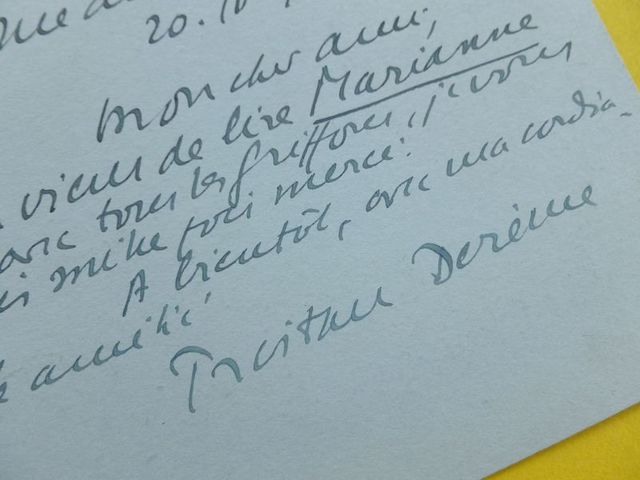 20. IV
Mon cher ami,
viens de lire Marianne
avec tous les griffons, je vous
dis mille fois merci.
A bientôt, avec ma cordia-
le amitié
Tristan Derème